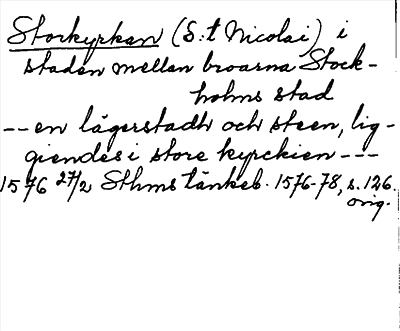 Storkyrkan (S:t Nicolai) i
staden mellan broarna Stock-
holms stad
--en lägerstadh och steen, lig-
giendes i store kyrckien ---
1576 27/2 Sthms tänkeb. 1576-78, s. 126.
orig.